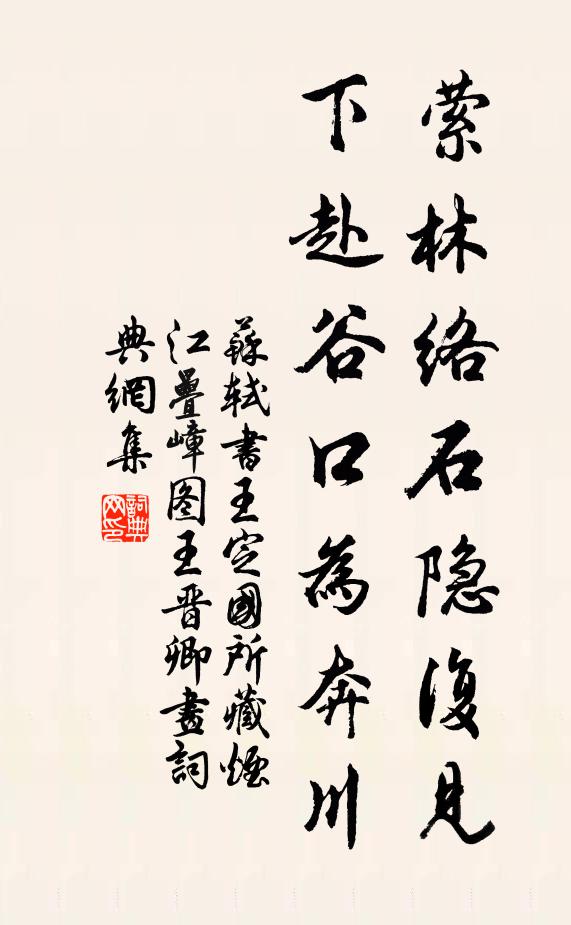 萦林络石隐復見
下赴谷口為奔川
蘇軾書王定國所藏煙
江疊嶂图王晋卿畫詞
典網集
詞典
网印